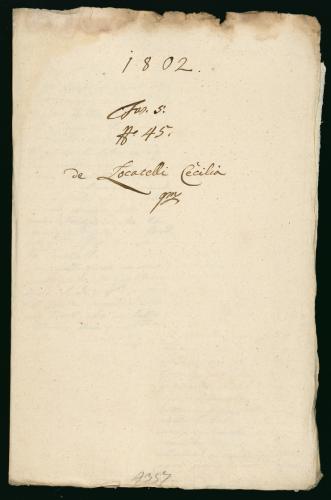 1802.
Fas. 5.
№ 45.
de Locatelli Cecilia
qm
4357